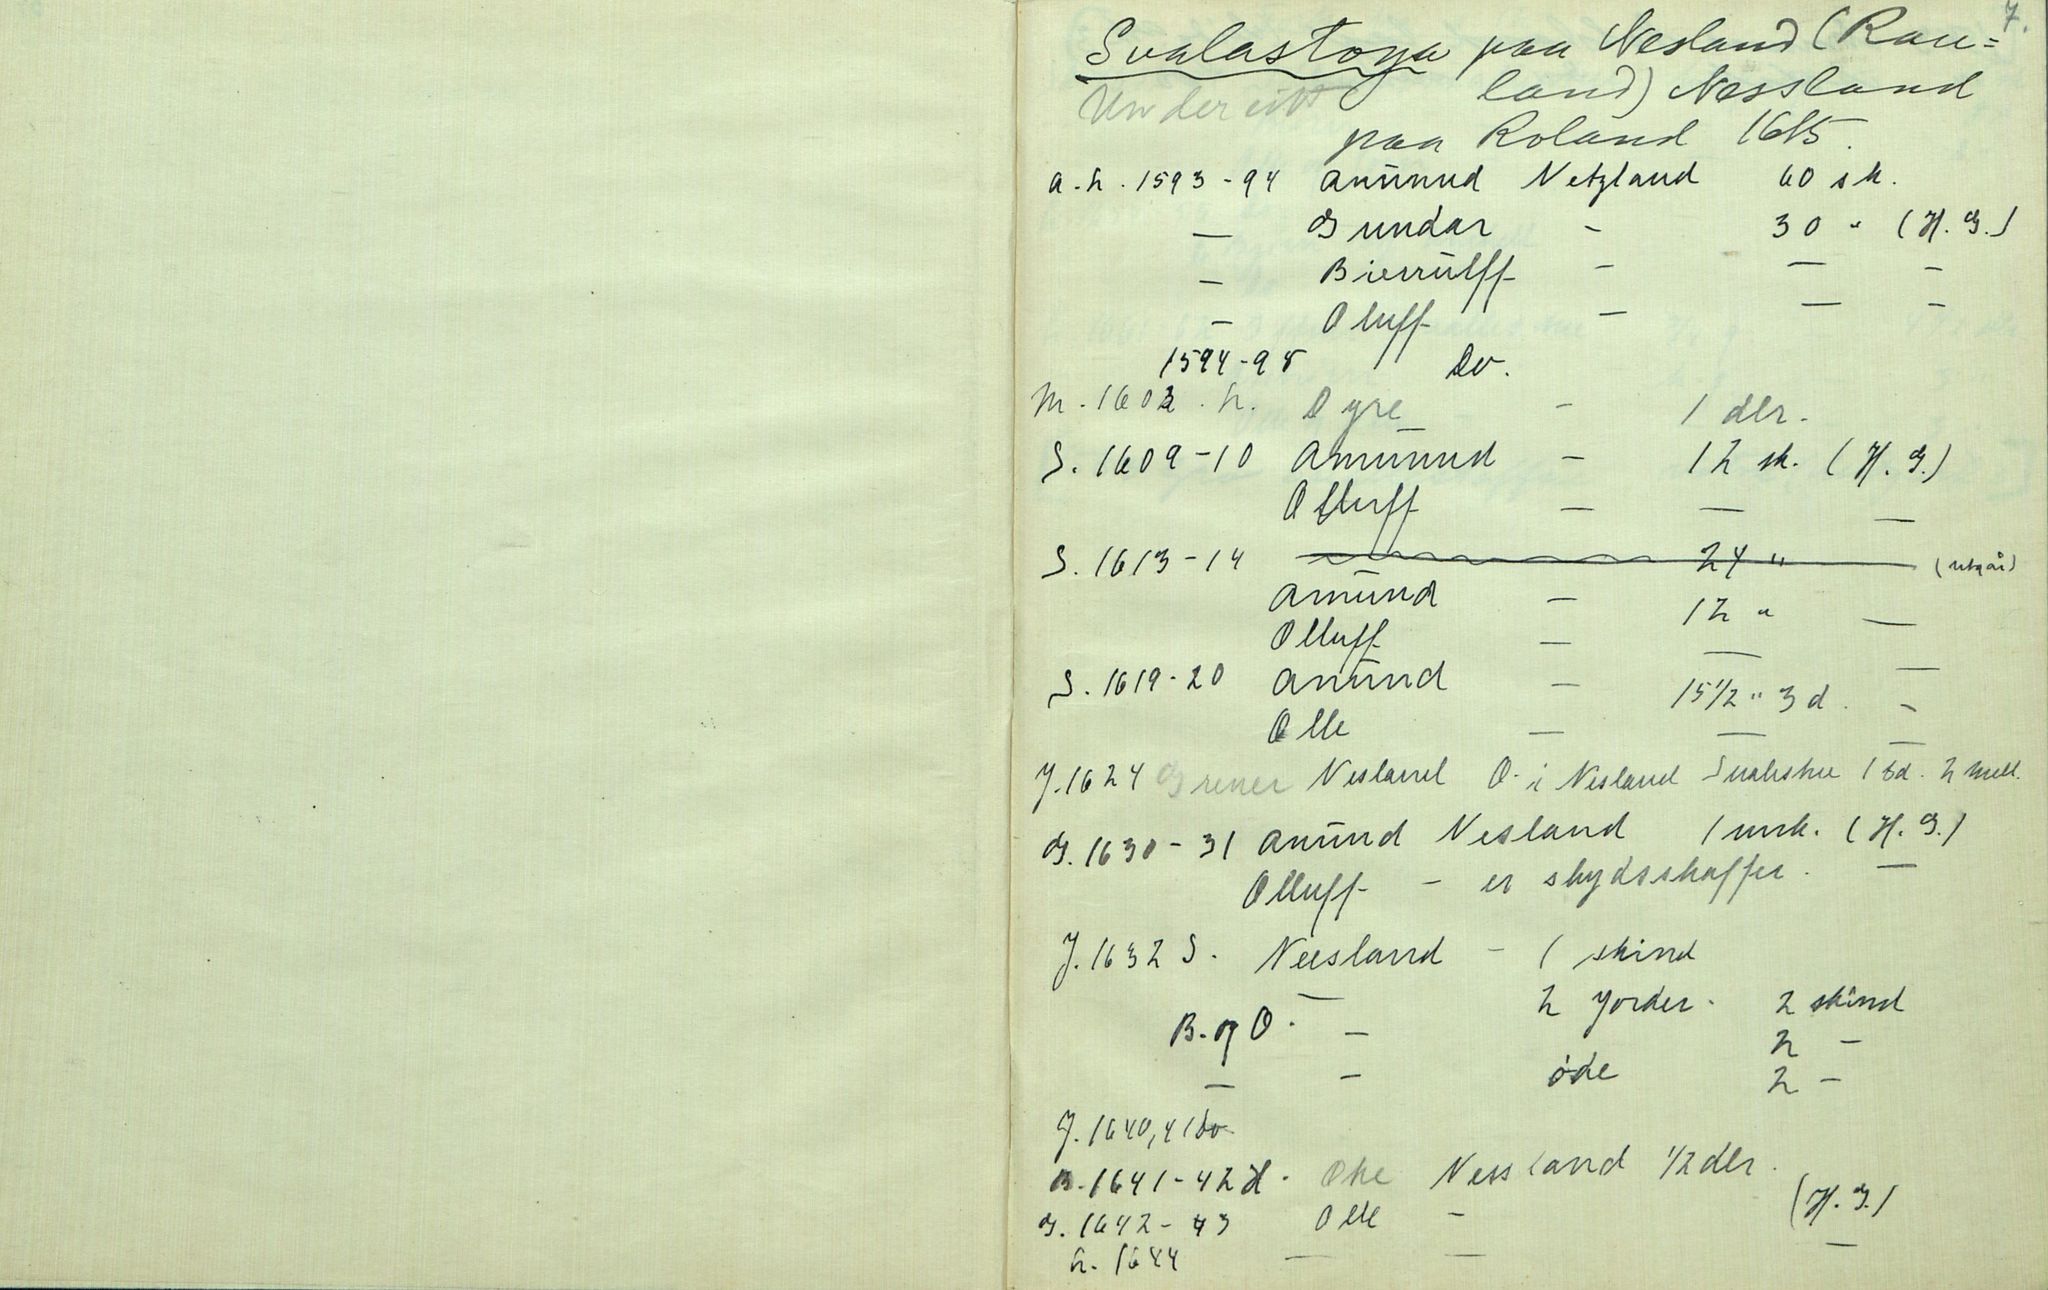 7.
Svalastoga paa Nesland (Rau=
land) Nessland
Under ett
paa Roland 1615.
A. L. 1593-94 Amund Netzland 60 sk.
— Gundar - 30 " (H. G.)
- Biørnulff - — -
- Oluff - — -
1594-95 Do.
M. 1602. L. Dyre - 1 dlr.
S. 1609-10 Amund - 12 sk. (H. G.)
Olluff — — —
S. 1613-14 24 " (utgår)
Amund - 12 " —
Olluff - — —
S. 1619-20 Amund - 15 1/2 " 3 d. -
Olle — — —
J. 1624 Grener Nesland O. i Nesland 1 td. 2 mell.
G. 1630-31 Amund Nesland 1 mrk. (H. G.)
Olluff - er skydsskaffer. —
J. 1632 S. Neesland - 1 skind
— 2 jorder. 2 skind
B. og O. - 2 -
— - øde 2 -
J. 1640,41 do
B. 1641-42 Ole Nessland 1/2 dlr.
G. 1642-43 Olle - (H. G.)
L. 1644 — — —